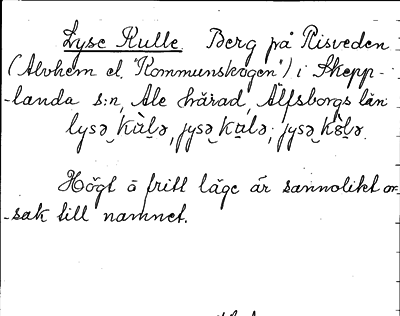 Lyse Kulle Berg på Risveden
(Alvhem el. "Kommunskogen") i Skepp-
-landa s:n, Ale härad, Älfsborgs län
lysə_kùlə, jysə_kulə, jysə_kolə.
Högt o fritt läge är sannolikt or-
-sak till namnet.